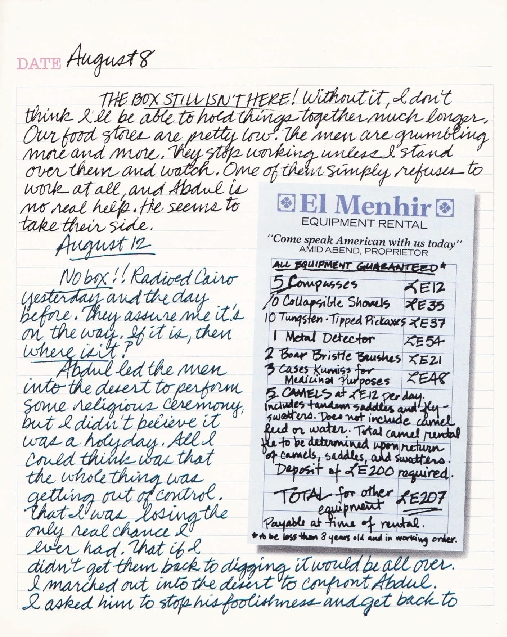 DATE August 8
THE BOX STILL ISN'T HERE! Without it, I don't
think I'll be able to hold things together much longer.
Our food stores are pretty low. The men are grumbling
more and more. They stop working unless I stand
over them and watch. One of them simply refuses to
work at all, and Abdul is
no real help. He seems to
take their side.
August 12
No box!! Radioed Cairo
yesterday and the day
before. They assure me it's
on the way. If it is, then
where is it?
Abdul led the men
into the desert to perform
some religious ceremony,
but I didn't believe it
was a holy day. All I
could think was that
the whole thing was
getting out of control.
That I was losing the
only real chance I
ever had. That if I
didn't get them back to digging it would be all over.
I marched out into the desert to confront Abdul.
I asked him to stop his foolishness and get back to
El Menhir
EQUIPMENT RENTAL
"Come speak American with us today"
AMID ABEND, PROPRIETOR
ALL EQUIPMENT GUARANTEED*
5 Compasses £E12
10 Collapsible Shovels £E35
10 Tungsten-Tipped Pickaxes £E37
1 Metal Detector £E54
2 Boar Bristle Brushes £E21
3 Cases Kumiss for
Medicinal Purposes £E48
5 CAMELS at £E12 per day.
Includes tandem saddles and fly-
swatters. Does not include camel
feed or water. Total camel rental
fee to be determined upon return
of camels, saddles, and swatters.
Deposit of £E200 required.
TOTAL for other
equipment £E207
Payable at time of rental.
*to be less than 3 years old and in working order.